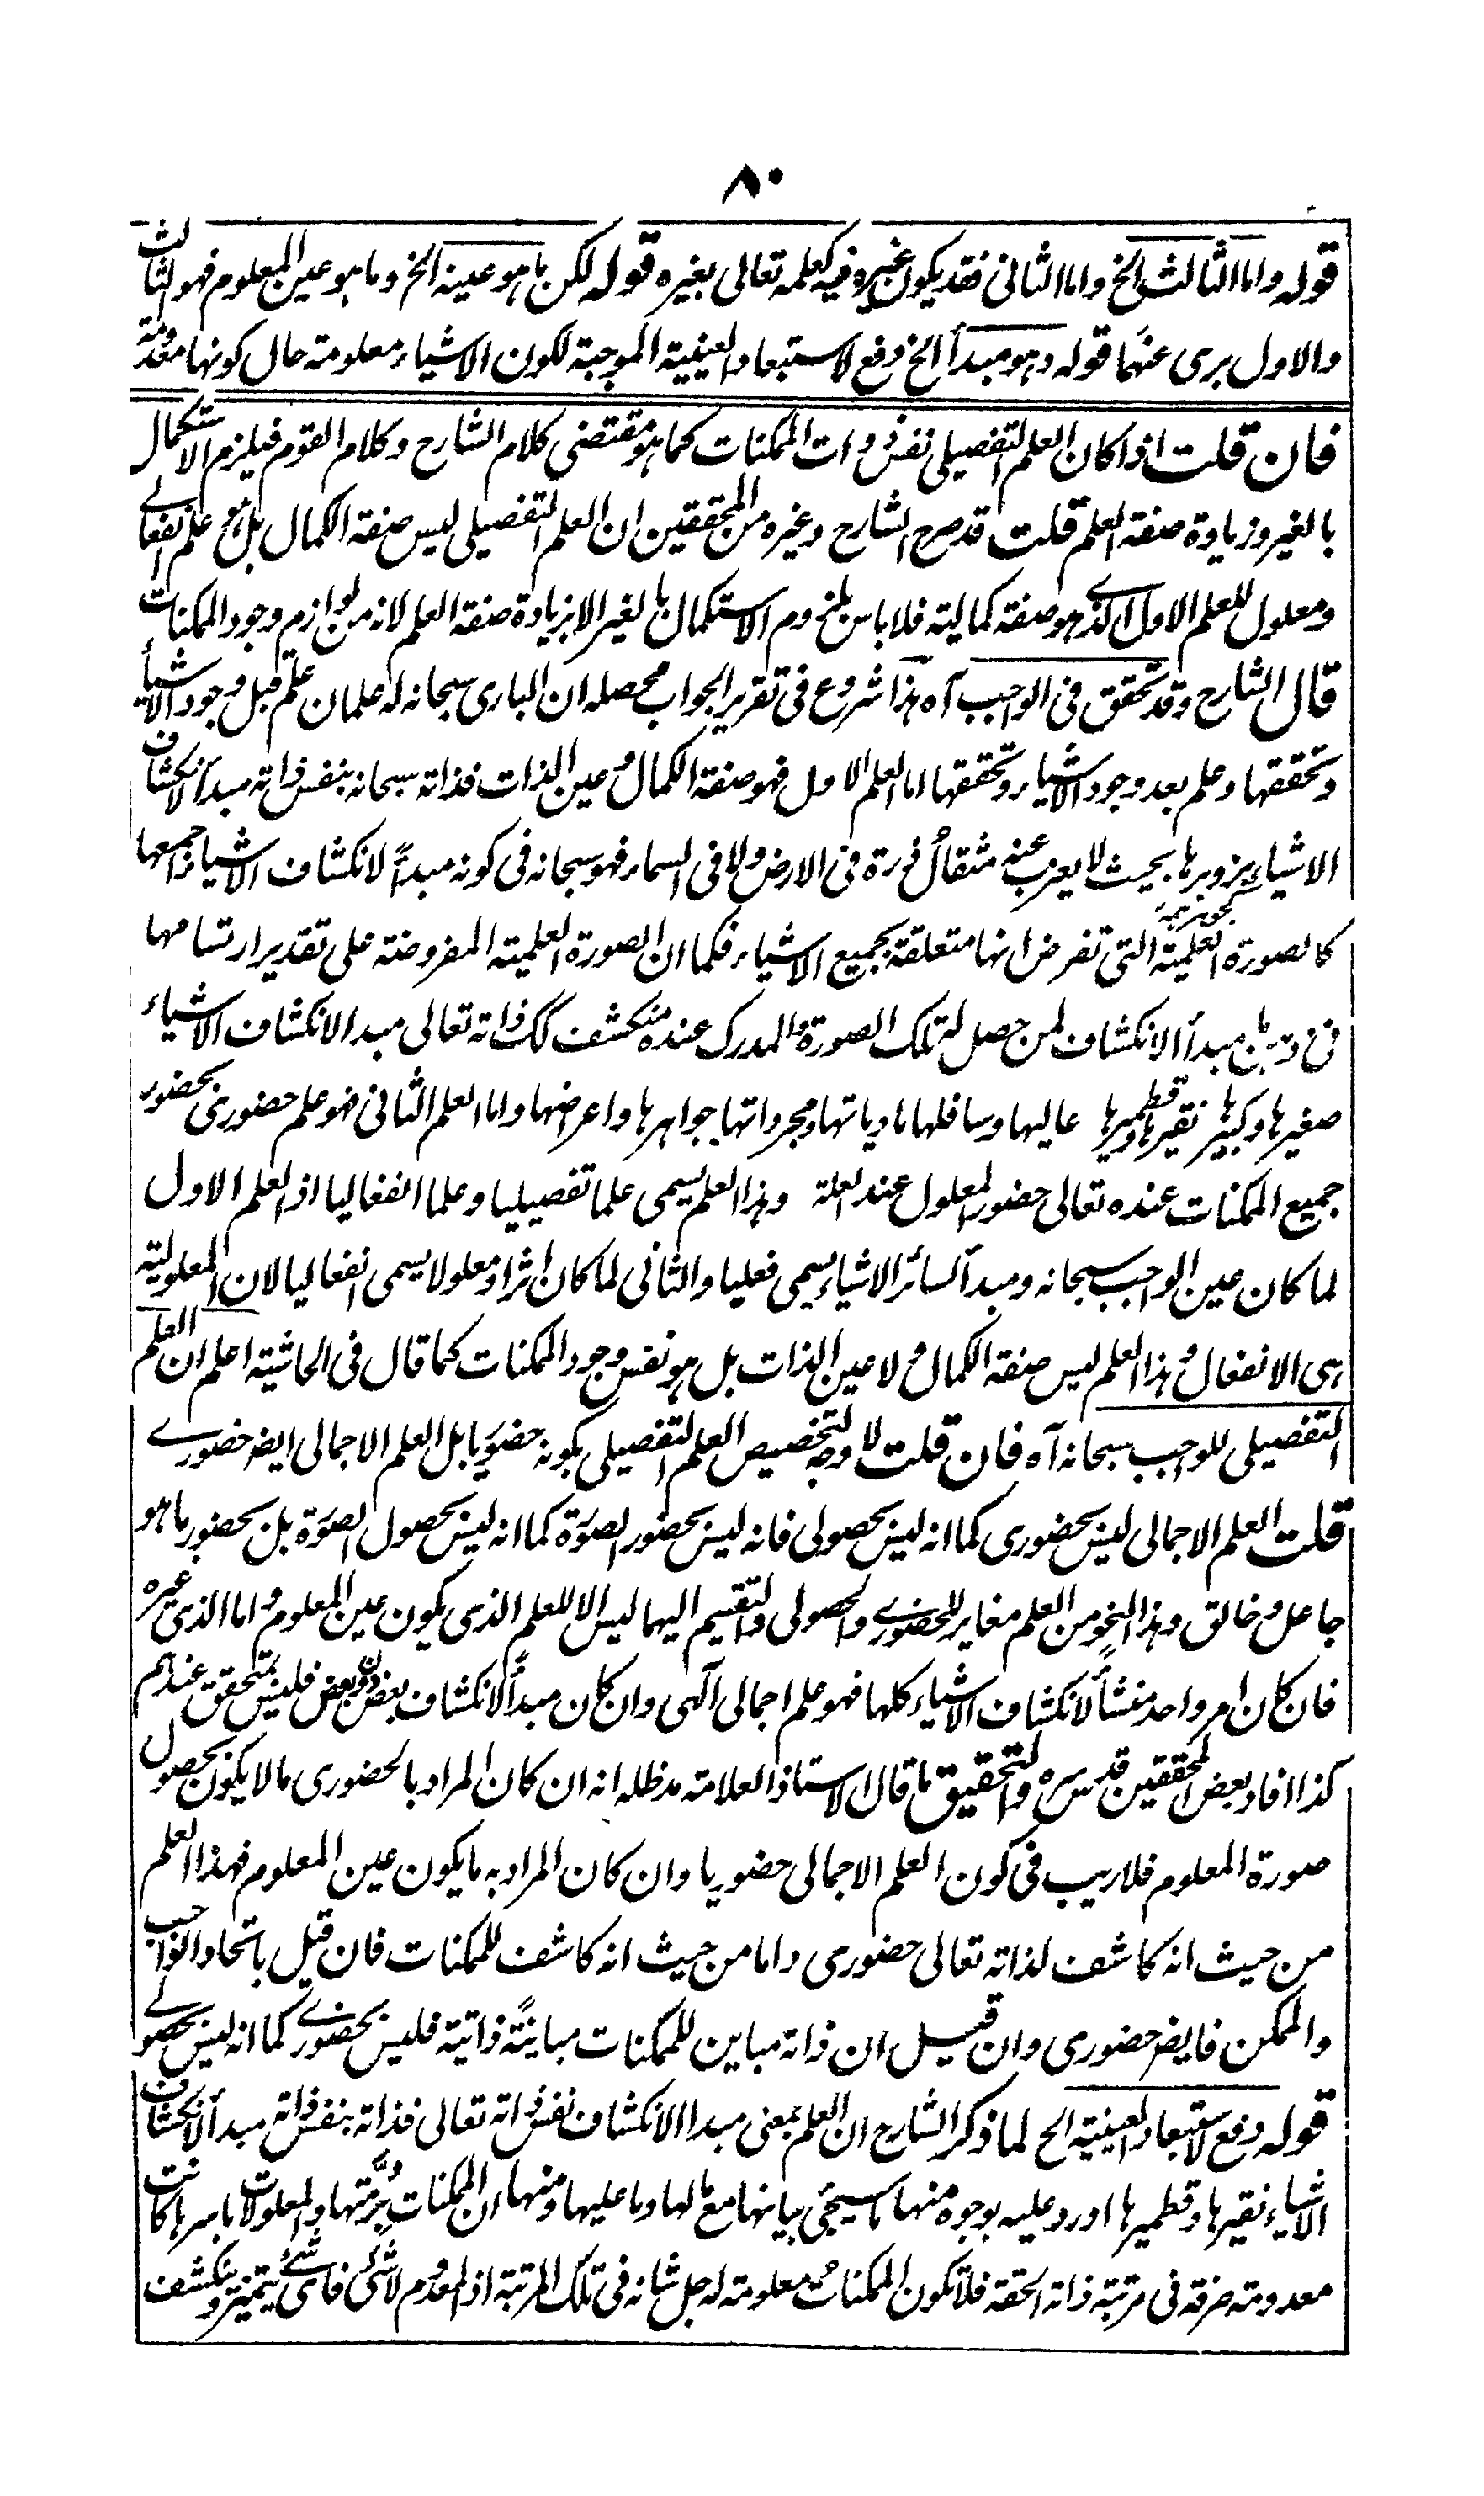 ۸۰
قوله واما الثالث الخ واما الثانى فقد يكون غيره فيه كعلمه تعالى بغيره قوله لكن ما هو عينه الخ وما هو عين المعلوم فهو الثالث
والاول برى عنهما قوله وهو مبدأ الخ دفع لاستبعاد العينية الموجبة لكون الاشياء معلومة حال كونها معدومة
فان قلت اذا كان العلم التفصيلى نفس ذوات الممكنات كما هو مقتضى كلام الشارح وكلام القوم فيلزم الاستكمال
بالغير وزيادة صفة العلم قلت قد صرح الشارح وغيره من المحققين ان العلم التفصيلى ليس صفة الكمال بل هو علم انفعالے
ومعلول للعلم الاول الذے هو صفة كمالية فلا باس بلزوم الاستكمال بالغير الا بزيادة صفة العلم لانه من لوازم وجود الممكنات
قال الشارح وقد تحقق فى الواجب آه هذا شروع فى تقرير الجواب محصله ان البارى سبحانه له علمان علم قبل وجود الاشياء
وتحققها وعلم بعد وجود الاشياء وتحققها اما العلم الاول فهو صفة الكمال وعين الذات فذاته سبحانه بنفس ذاته مبدأ لانكشاف
الاشياء بزوبرها بحيث لا يعزب عنه مثقال ذرة فى الارض ولا فى السماء فهو سبحانه فى كونه مبدأً لانكشاف الاشياء اجمعها
كالصورة العلمية التى تفرض انها متعلقة بجميع الاشياء فكما ان الصورة العلمية المفروضة على تقدير ارتسامها
فى ذهن مبدأ الانكشاف لمن حصل له تلك الصورة والمدرك عنده منكشف كك ذاته تعالى مبدا لانكشاف الاشياء
صغيرها وكبيرها نقيرها وقطميرها عاليها وسافلها مادياتها ومجرداتها جواهرها واعراضها واما العلم الثانى فهو علم حضورى بحضور
جميع الممكنات عنده تعالى حضور المعلول عند العلة وهذا العلم يسمى علما تفصيليا وعلما انفعاليا اذ العلم الاول
لما كان عين الواجب سبحانه ومبدأ لسائر الاشياء يسمى فعليا والثانى لما كان اثرا ومعلولا يسمى انفعاليا لان المعلولية
هى الانفعال وهذا العلم ليس صفة الكمال ولا عين الذات بل هو نفس وجود الممكنات كما قال فى الحاشية اعلم ان العلم
التفصيلى للواجب سبحانه آه فان قلت لا وجه لتخصيص العلم التفصيلى بكونه حضوريا بل العلم الاجمالى ايضا حضورے
قلت العلم الاجمالى ليس بحضورى كما انه ليس بحصولى فانه ليس بحضور الصورة كما انه ليس بحصول الصورة بل بحضور ما هو
جاعل وخالق وهذا النحو من العلم مغاير للحضورے والحصولى والتقسيم اليهما ليس الا للعلم الذى يكون عين المعلوم واما الذى غيره
فان كان امر واحد منشأ لانكشاف الاشياء كلها فهو علم اجمالى آلهى وان كان مبدأ لانكشاف بعض دون بعض فليس بمتحقق عندهم
كذا افاد بعض المحققين قدس سره والتحقيق ما قال الاستاذ العلامة مدظله انه ان كان المراد بالحضورى ما لا يكون بحصول
صورة المعلوم فلا ريب فى كون العلم الاجمالى حضوريا وان كان المراد به ما يكون عين المعلوم فهذا العلم
من حيث انه كاشف لذاته تعالى حضورى واما من حيث انه كاشف للممكنات فان قيل باتحاد الواجب
والممكن فايضا حضورى وان قيل ان ذاته مباين للممكنات مباينةً ذاتية فليس بحضورے كما انه ليس بحصولے
قوله دفع لاستبعاد العينية الخ لما ذكر الشارح ان العلم بمعنى مبدا الانكشاف نفس ذاته تعالى فذاته بنفس ذاته مبدأ لانكشاف
الاشياء نقيرها وقطميرها اورد عليه بوجوه منها ما سيجئ بيانها مع مالها وما عليها ومنها ان الممكنات برمتها والمعلولات باسرها كانت
معدومة صرفة فى مرتبة ذاته الحقة فلا تكون الممكنات معلومة له جل شانه فى تلك المرتبة اذ المعدوم لا شئ فاى شئے يتميز وينكشف